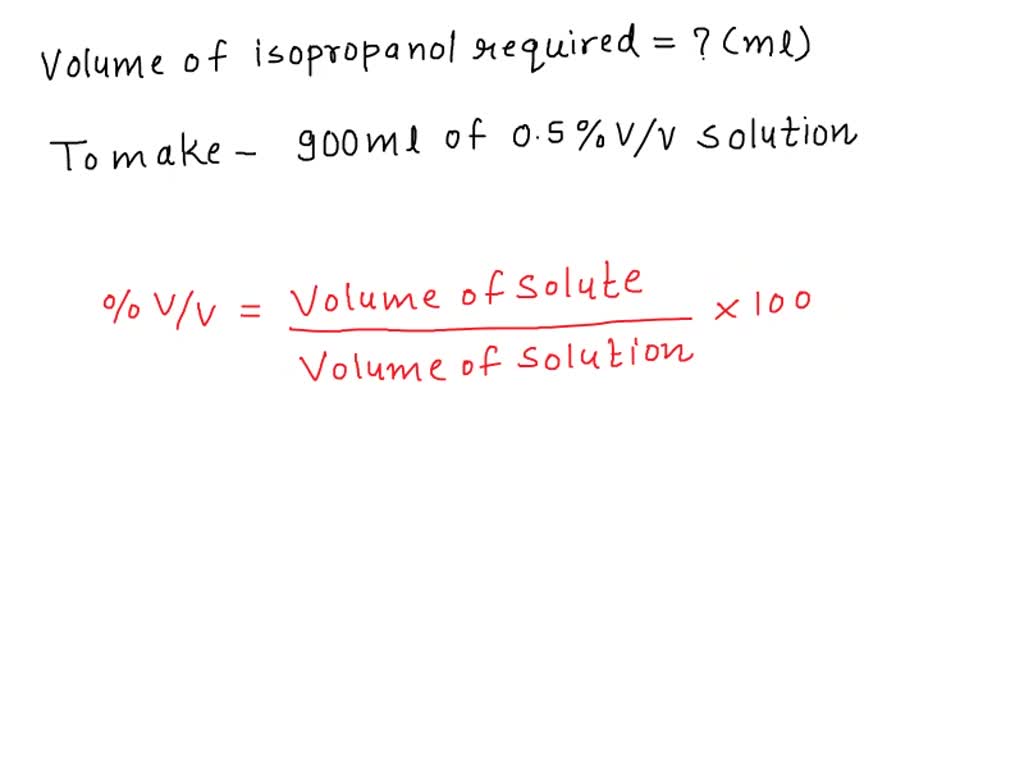 Volume of isopropanol required = ? (ml)
To make - 900ml of 0.5% V/V solution
% V/V = Volume of Solute / Volume of Solution × 100